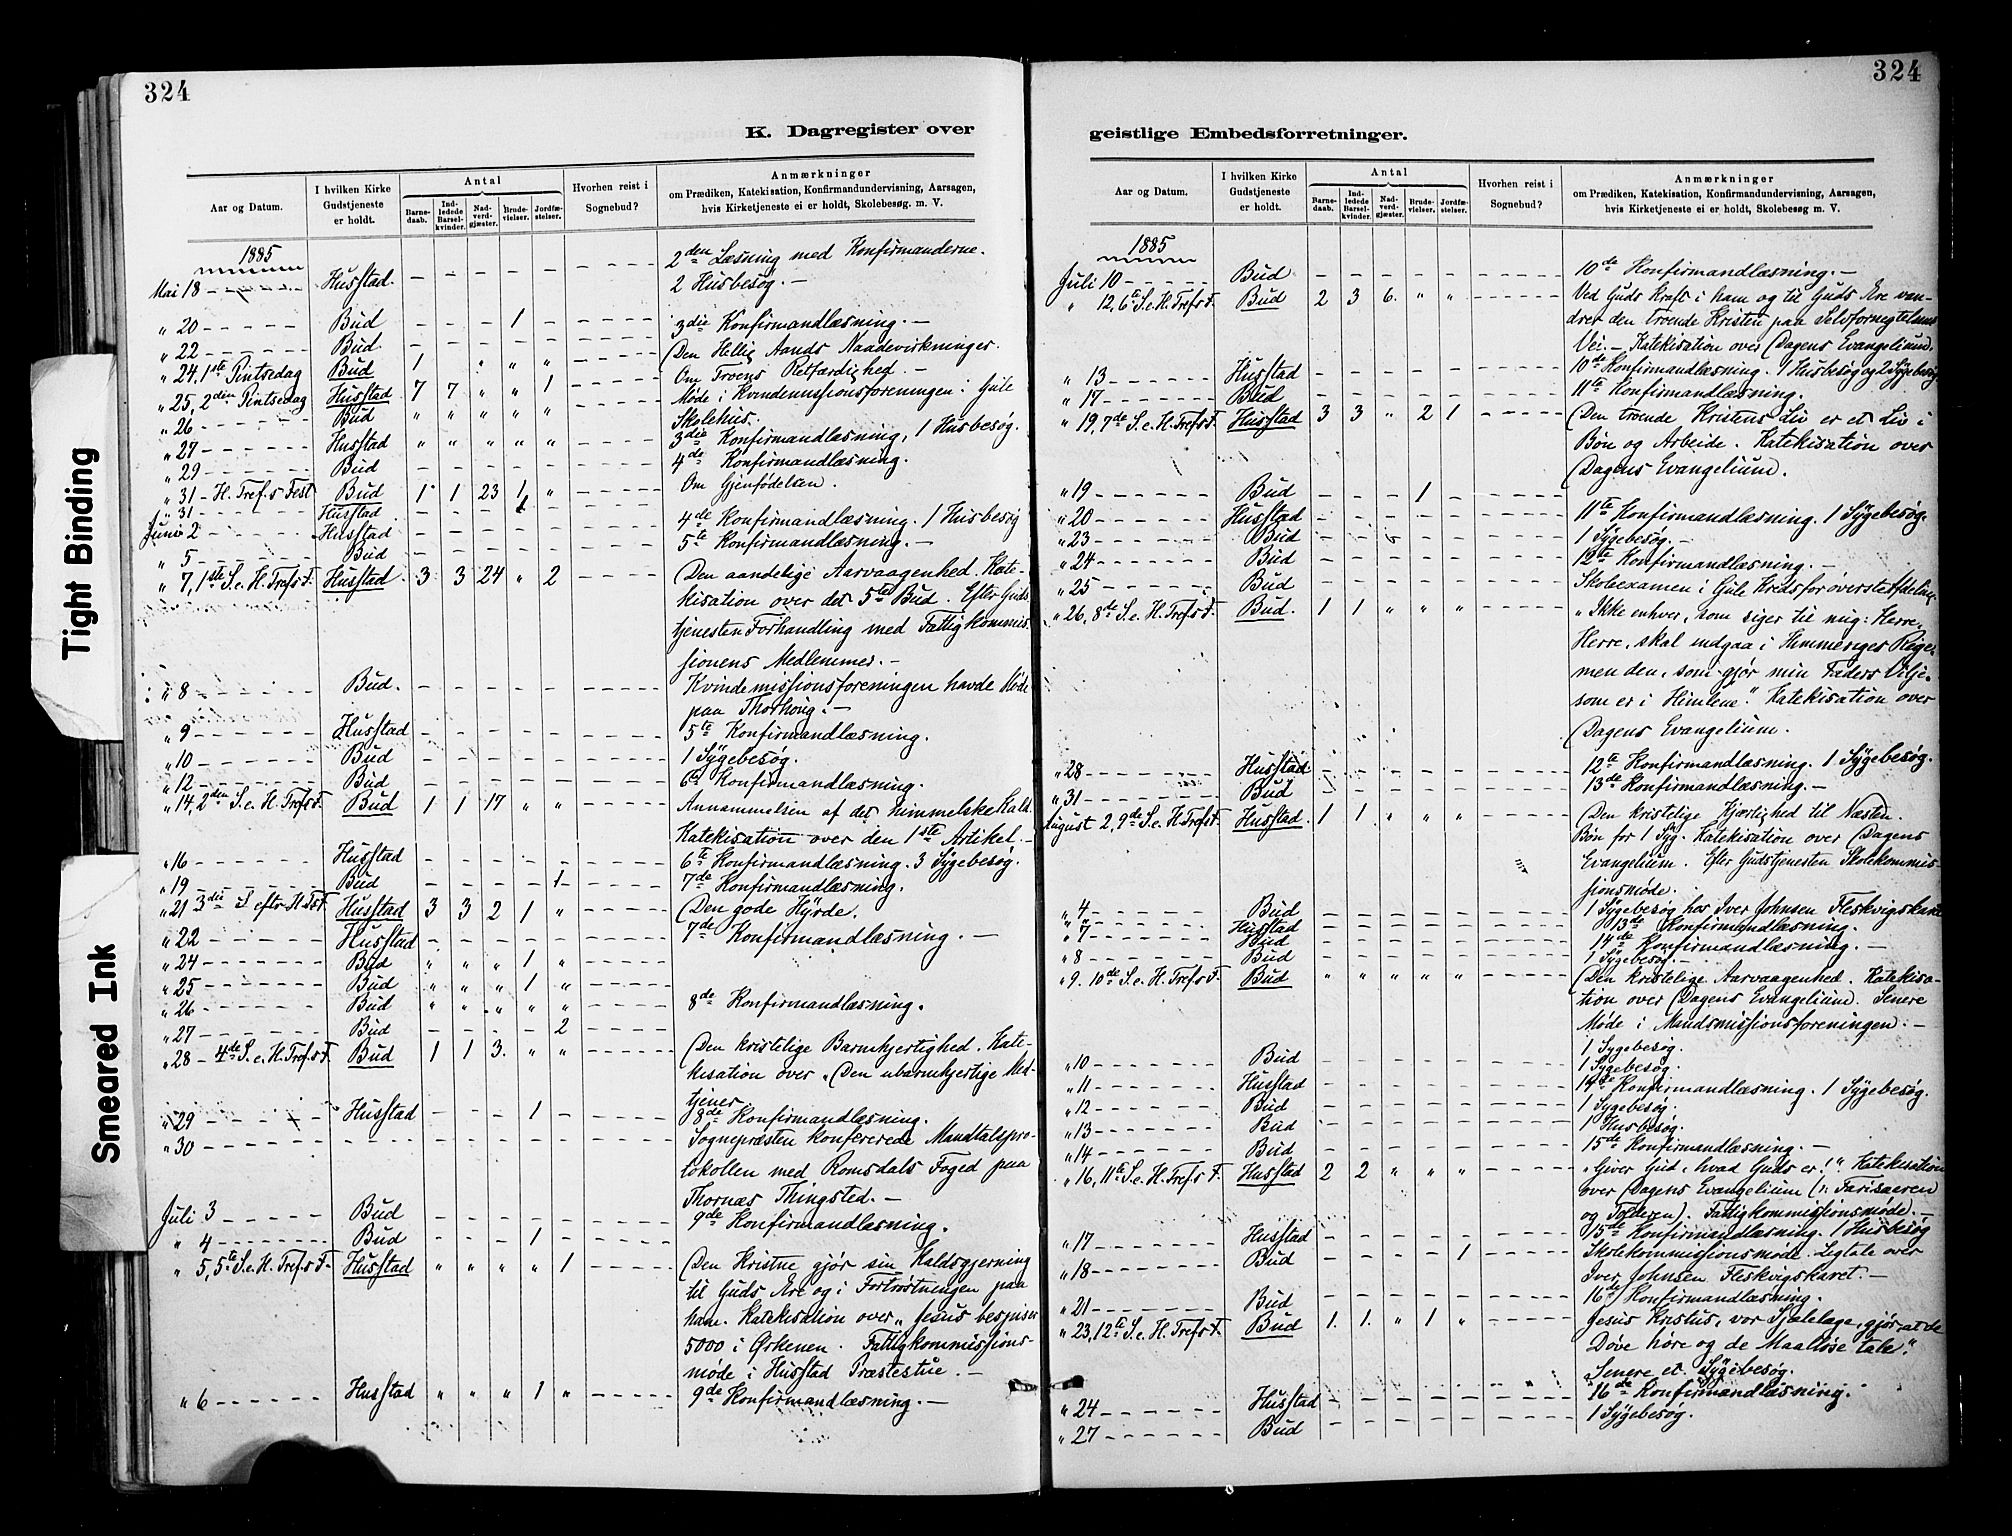 324
K. Dagregister over
Aar og Datum. I hvilken Kirke Gudstjeneste er holdt. Antal Barnedaab. Indledede Barselkvinder. Nadverdgjæster. Brudevielser. Jordfæstelser. Hvorhen reist i Sognebud? Anmærkninger om Prædiken, Katekisation, Konfirmandundervisning, Aarsagen, hvis Kirketjeneste ei er holdt, Skolebesøg. m. V.
1885
2den Læsning med Konfirmanderne.
Mai 18 - - - Husstad. - - - - - 2 Husbesøg. -
" 20 - - - Bud - - - 1 - 3die Konfirmandlæsning. -
" 22 - - - Bud. - - - - - Den Hellig Aands Naadevirkninger.
" 24, 1ste Pintsedag Bud 1 " " " Om Troens Retfærdighed. -
" 25, 2den Pintsedag Husstad 7 7 " " 1 Møde i Kvindemissionsforeningen i Gule
" 26 - - - Bud " " " " " Skolehus.
" 27 - - - Husstad " " " " " 3die Konfirmandlæsning, 1 Husbesøg.
" 29 - - - Bud - - - - - 4de Konfirmandlæsning.
" 31 - H. Tref.s Fest Bud 1 1 23 1 " Om Gjenfødelsen.
" 31 - - - Husstad
Juni 2 - - - Husstad - - - - - 4de Konfirmandlæsning. 1 Husbesøg
" 5 - - - Bud - - - - - 5te Konfirmandlæsning. -
" 7, 1ste S. e. H. Tref.s F. Husstad 3 3 24 " 2 Den aandelige Aarvaagenhed. Kate-
kisation over det 5te Bud. Efter Guds
tjenesten Forhandling med Fattigkommis
sionens Medlemmer. -
" 8 - - - Bud. - - - - - Kvindemissionsforeningen havde Møde
paa Thorhoug. -
" 9 - - - Husstad - - - - - 5te Konfirmandlæsning.
" 10 - - - Bud - - - - - 1 Sygebesøg.
" 12 - - - Bud - - - - - 6te Konfirmandlæsning.
" 14, 2den S. e. H. Tref.s F. Bud 1 1 17 " " Annammelsen af det himmelske Kald.
Katekisation over den 1ste Artikel. -
" 16 - - - Husstad - - - - - 6te Konfirmandlæsning. 3 Sygebesøg.
" 19 - - - Bud - - - - 1 7de Konfirmandlæsning.
" 21 3die S. eftr H. T.s F. Husstad 3 3 2 1 " Den gode Hyrde.
" 22 - - - Husstad - - - - - 7de Konfirmandlæsning. -
" 24 - - - Bud " " " 1 "
" 25 - - - Bud " " " 1 "
" 26 - - - Bud " " " " " 8de Konfirmandlæsning.
" 27 - - - Bud - - - - 2
" 28 - 4de S. e. H. Tref.s F. Bud 1 1 3. " " Den kristelige Barmhjertighed. Kate-
kisation over "Den ubarmhjertige Med-
tjener.
" 29 - - - Husstad - - - 1 - 8de Konfirmandlæsning.
" 30 - - - Sognepræsten konfererede Mandtalspro-
tokollen med Romsdals Foged paa
Thornæs Thingsted. -
Juli 3 - - - Bud - - - - - 9de Konfirmandlæsning.
" 4 - - - Bud - - - 1 -
" 5, 5te S. e. H. Tref.s F. Husstad " " " " 1 Den Kristne gjør sin Kaldsgjerning
til Guds Ære og i Fortrøstningen paa
ham. Katekisation over "Jesus bespiser
5000 i Ørkenen. Fattigkommissions-
møde i Husstad Præstestue. -
" 6 - - - Husstad " " " 1 " 9de Konfirmandlæsning. -
324
geistlige Embedsforretninger.
Aar og Datum. I hvilken Kirke Gudstjeneste er holdt. Antal Barnedaab. Indledede Barselkvinder. Nadverdgjæster. Brudevielser. Jordfæstelser. Hvorhen reist i Sognebud? Anmærkninger om Prædiken, Katekisation, Konfirmandundervisning, Aarsagen, hvis Kirketjeneste ei er holdt, Skolebesøg. m. V.
1885
Juli 10 - - - Bud - - - - - 10de Konfirmandlæsning. -
" 12, 6te S. e. H. Tref.s F. Bud 2 3 6. " " Ved Guds Kraft i ham og til Guds Ære van-
drer den troende Kristen paa Selvfornegtelsens
Vei. - Katekisation over Dagens Evangelium.
" 13 - - - Husstad - - - - - 10de Konfirmandlæsning. 1 Husbesøg og 2 Sygebesøg.
" 17 - - - Bud - - - - - 11te Konfirmandlæsning.
" 19, 7de S. e. H. Tref.s F. Husstad 3 3 " 2 1 Den troende Kristens Liv er et Liv i
Bøn og Arbeide. Katekisation over
Dagens Evangelium.
" 19 - - - Bud - - - 1 -
" 20 - - - Husstad - - - - - 11te Konfirmandlæsning. 1 Sygebesøg.
" 23 - - - Bud - - - - - 1 Sygebesøg. -
" 24 - - - Bud - - - - - 12te Konfirmandlæsning. -
" 25 - - - Bud - - - - - Skoleexamen i Gule Kreds for øverste Afdeling.
" 26, 8de S. e. H. Tref.s F. Bud. 1 1 " " " "Ikke enhver, som siger til mig: Herre,
Herre, skal indgaa i Himmeriges Rige,
men den, som gjør min Faders Vilje,
som er i Himlene." Katekisation over
Dagens Evangelium.
" 28 - - - Husstad - - - - - 12te Konfirmandlæsning. 1 Sygebesøg.
" 31 - - - Bud - - - - - 13de Konfirmandlæsning. -
August 2, 9de S. e. H. Tref.s F. Husstad. 1 1 " " " Den kristelige Kjærlighed til Næsten.
Bøn for 1 Syg. Katekisation over Dagens
Evangelium. Efter Gudstjenesten Skolekommis-
sionsmøde.
" 4 - - - Bud - - - - - 1 Sygebesøg hos Iver Johnsen Fleskvigskaret
" 7 - - - Husstad - - - - - 13de Konfirmandlæsning.
Bud - - - - - 14de Konfirmandlæsning. -
" 8 - - - Bud - - - - - 1 Sygebesøg. -
" 9. 10de S. e. H. Tref.s F. Bud " " " " " Den kristelige Aarvaagenhed. Katekisa-
tion over Dagens Evangelium. Senere
Møde i Mandsmissionsforeningen. -
" 10 - - - Bud - - - - - 1 Sygebesøg.
1 Sygebesøg.
" 11 - - - Husstad - - - - - 14de Konfirmandlæsning. 1 Sygebesøg.
" 12 - - - Bud - - - - - 1 Sygebesøg.
" 13 - - - Bud - - - - - 1 Husbesøg.
" 14 - - - Bud - - - - - 15de Konfirmandlæsning. -
" 16, 11te S. e. H. Tref.s F. Husstad 2 2 " " " "Giver Gud, hvad Guds er!" Katekisation
over Dagens Evangelium (: Farisæeren
og Tolderen). Fattigkommissionsmøde. -
" 17 - - - Husstad - - - - - 15de Konfirmandlæsning. 1 Husbesøg
" 18 - - - Bud - - - - 1 Skolekommissionsmøde. Ligtale over
Iver Johnsen Fleskvigskaret. -
" 21 - - - Bud - - - - - 16de Konfirmandlæsning.
" 23, 12te S. e. H. Tref.s F. Bud 1. 1. " 1 " Jesus Kristus, vor Sjælelæge, gjør, at de
Døve høre og de Maalløse tale."
Senere et Sygebesøg.
" 24 - - - Husstad - - - - - 16de Konfirmandlæsning.
" 27 - - - Bud - - - - - 1 Sygebesøg.
Tight Binding
Smeared Ink